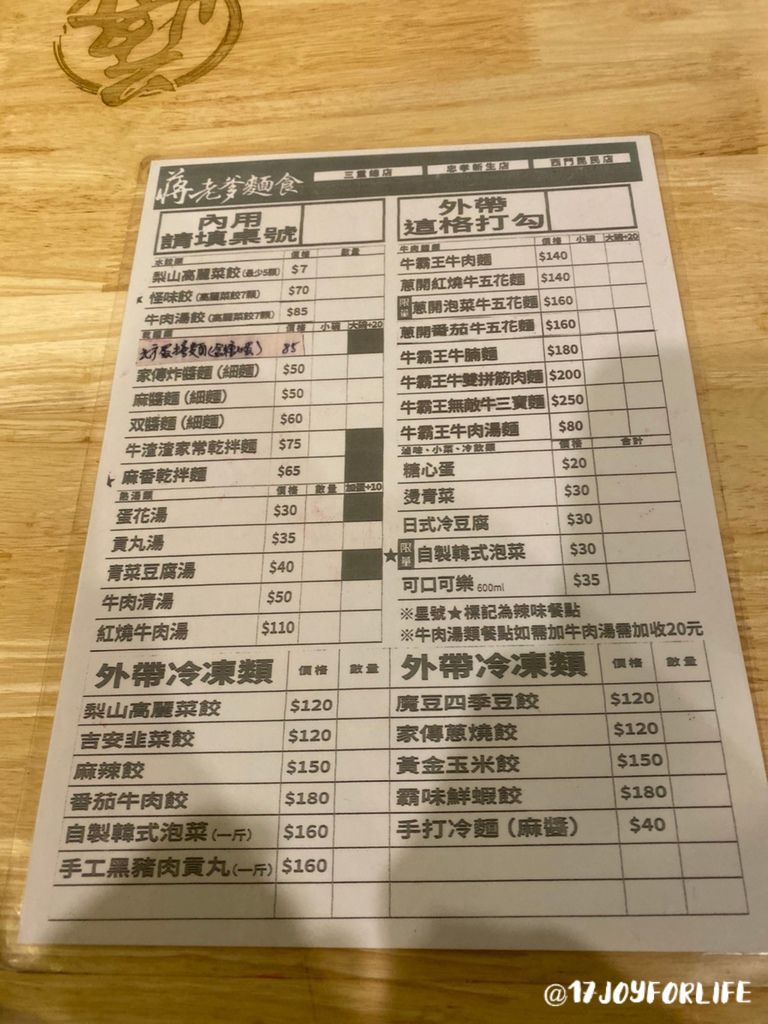 蔣老爹麵食 三重總店 忠孝新生店 西門昆民店
內用
請填桌號
水餃類 價格 數量
梨山高麗菜餃(最少5顆) $7
★怪味餃(高麗菜餃7顆) $70
牛肉湯餃(高麗菜餃7顆) $85
乾麵類 價格 小碗 大碗+20
85
家傳炸醬麵(細麵) $50
麻醬麵(細麵) $50
双醬麵(細麵) $60
牛渣渣家常乾拌麵 $75
★麻香乾拌麵 $65
熱湯類 價格 數量 加蛋+10
蛋花湯 $30
貢丸湯 $35
青菜豆腐湯 $40
牛肉清湯 $50
紅燒牛肉湯 $110
外帶
這格打勾
牛肉麵類 價格 小碗 大碗+20
牛霸王牛肉麵 $140
蔥開紅燒牛五花麵 $140
限單 蔥開泡菜牛五花麵 $160
蔥開番茄牛五花麵 $160
牛霸王牛腩麵 $180
牛霸王牛雙拼筋肉麵 $200
牛霸王無敵牛三寶麵 $250
牛霸王牛肉湯麵 $80
滷味、小菜、冷飲類 價格 合計
糖心蛋 $20
燙青菜 $30
日式冷豆腐 $30
★限單 自製韓式泡菜 $30
可口可樂 600ml $35
※星號★標記為辣味餐點
※牛肉湯類餐點如需加牛肉湯需加收20元
外帶冷凍類 價格 數量
梨山高麗菜餃 $120
吉安韭菜餃 $120
麻辣餃 $150
番茄牛肉餃 $180
自製韓式泡菜(一斤) $160
手工黑豬肉貢丸(一斤) $160
外帶冷凍類 價格 數量
魔豆四季豆餃 $120
家傳蔥燒餃 $120
黃金玉米餃 $150
霸味鮮蝦餃 $180
手打冷麵(麻醬) $40
@17JOYFORLIFE